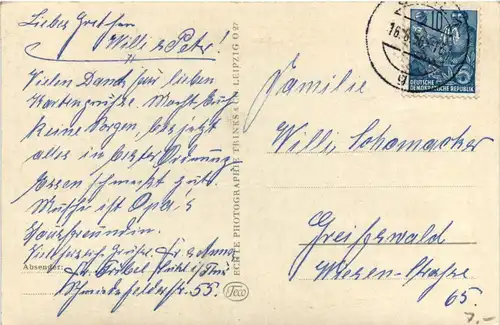 Liebes Gretchen
Willi u Peter!
Vielen Dank für lieben
Kartengruß. Macht Euch
keine Sorgen, bis jetzt
alles in bester Ordnung
Essen schmeckt gut.
Mutti ist Opa's
Hausfreundin.
Grüße
Absender:
Schmiedefelderstr. 55.
ECHTE PHOTOGRAPHIE TRINKS & CO LEIPZIG O 27
Trico
DEUTSCHE
DEMOKRATISCHE REPUBLIK
Familie
Willi Schomacker
Greifswald
Wiesen-Straße
65.
7.-